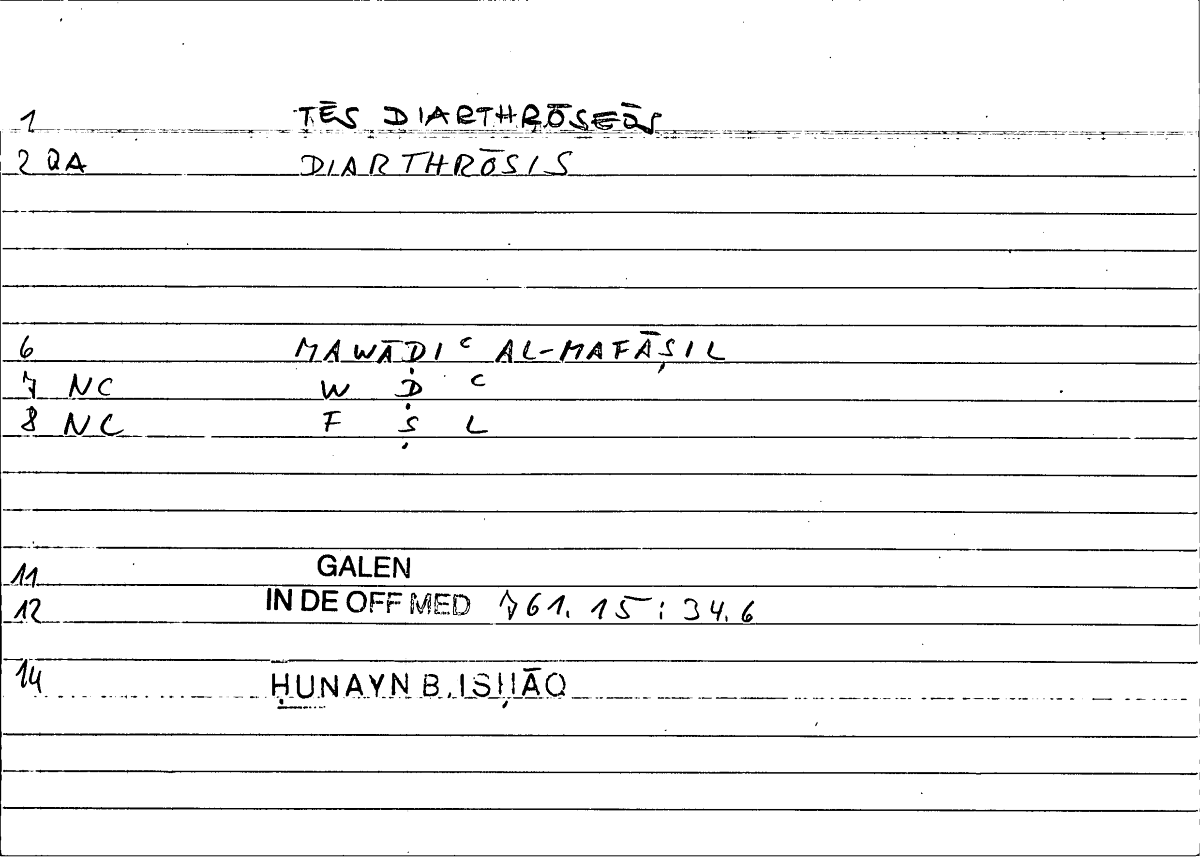 1 TĒS DIARTHRŌSEŌS
2 QA DIARTHRŌSIS
6 MAWĀḌIʿ AL-MAFĀṢIL
7 NC W Ḍ ʿ
8 NC F Ṣ L
11 GALEN
12 IN DE OFF MED 761.15 ; 34.6
14 ḤUNAYN B. ISḤĀQ